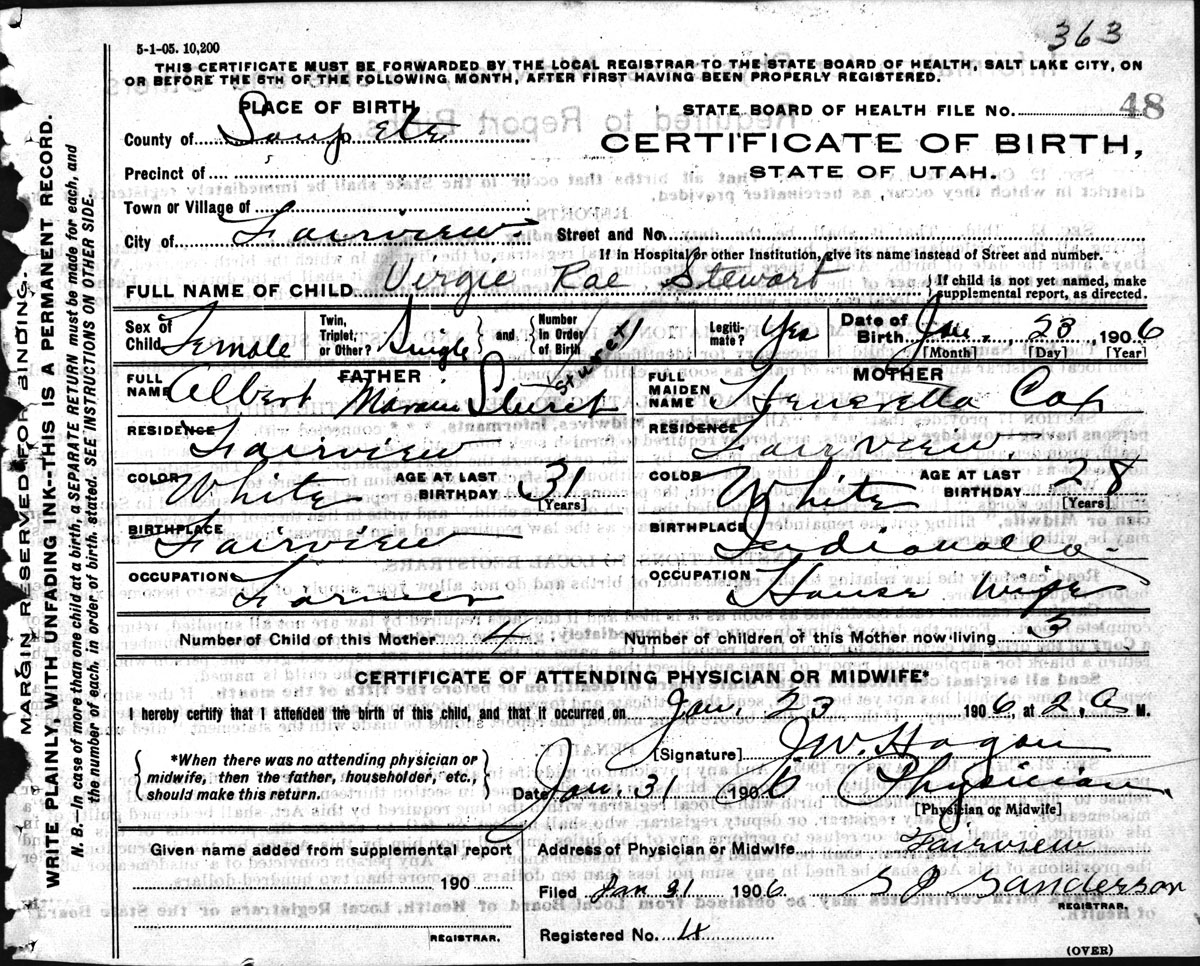 363
5-1-05. 10,200
THIS CERTIFICATE MUST BE FORWARDED BY THE LOCAL REGISTRAR TO THE STATE BOARD OF HEALTH, SALT LAKE CITY, ON
OR BEFORE THE 5TH OF THE FOLLOWING MONTH, AFTER FIRST HAVING BEEN PROPERLY REGISTERED.
PLACE OF BIRTH
STATE BOARD OF HEALTH FILE No. 48
County of Sanpete
CERTIFICATE OF BIRTH,
STATE OF UTAH.
Precinct of
Town or Village of
City of Fairview Street and No.
If in Hospital or other Institution, give its name instead of Street and number.
FULL NAME OF CHILD Virgie Rae Stewart { If child is not yet named, make
supplemental report, as directed.
Sex of Child Female Twin, Triplet, or Other? Single and Number in Order of Birth Legitimate? Yes Date of Birth Jan. 23 1906
[Month] [Day] [Year]
FATHER
MOTHER
FULL NAME Albert Moroni
FULL MAIDEN NAME Heneretta Cox
RESIDENCE Fairview
RESIDENCE Fairview
COLOR White AGE AT LAST BIRTHDAY 31 [Years]
COLOR White AGE AT LAST BIRTHDAY 28 [Years]
BIRTHPLACE Fairview
BIRTHPLACE
OCCUPATION Farmer
OCCUPATION House Wife
Number of Child of this Mother 4 Number of children of this Mother now living 3
CERTIFICATE OF ATTENDING PHYSICIAN OR MIDWIFE*
I hereby certify that I attended the birth of this child, and that it occurred on Jan. 23 1906, at 2. A M.
[Signature] J W. Hagan
{ *When there was no attending physician or
midwife, then the father, householder, etc.,
should make this return. }
Date Jan. 31 1906 Physician
[Physician or Midwife]
Given name added from supplemental report
190
REGISTRAR.
Address of Physician or Midwife Fairview
Filed Jan 31 1906. Sanderson
REGISTRAR.
Registered No. 4
(OVER)
MARGIN RESERVED FOR BINDING.
WRITE PLAINLY, WITH UNFADING INK--THIS IS A PERMANENT RECORD.
N. B.--In case of more than one child at a birth, a SEPARATE RETURN must be made for each, and
the number of each, in order of birth, stated. SEE INSTRUCTIONS ON OTHER SIDE.